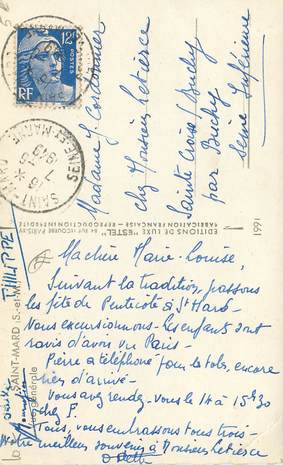 12F
POSTES
RF
SAINT-MARD
SEINE-ET-MARNE
1949
Madame J. Cordonnier
chez Monsieur Letierce
Sainte Croix / Buchy
par Buchy
Seine Inférieure
EDITIONS DE LUXE "ESTEL"
FABRICATION FRANÇAISE - REPRODUCTION INTERDITE
1661
SAINT-MARD (S.-et-M.)
Vue générale
Ma chère Marie-Louise,
Suivant la tradition, passons
les fêtes de Pentecôte à St Mard.
Nous excursionnons. Les enfants sont
ravis d'avoir vu Paris.
Pierre a téléphoné pour les tolos, encore
rien d'arrivé.
Vous avez rendez-vous le 14 à 15h30
chez F.
Tous, vous embrassons tous trois.
meilleur souvenir à Monsieur Letierce
Odette